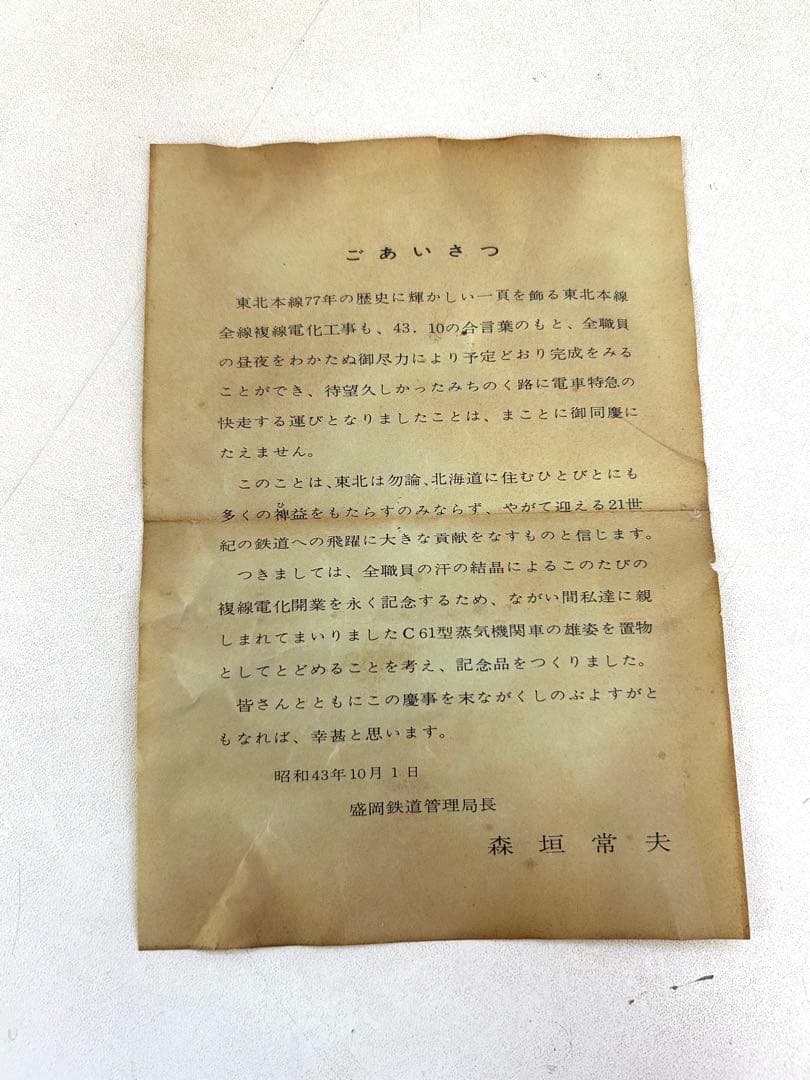 ごあいさつ
東北本線77年の歴史に輝かしい一頁を飾る東北本線
全線複線電化工事も、43.10の合言葉のもと、全職員
の昼夜をわかたぬ御尽力により予定どおり完成をみる
ことができ、待望久しかったみちのく路に電車特急の
快走する運びとなりましたことは、まことに御同慶に
たえません。
このことは、東北は勿論、北海道に住むひとびとにも
多くの裨益をもたらすのみならず、やがて迎える21世
紀の鉄道への飛躍に大きな貢献をなすものと信じます。
つきましては、全職員の汗の結晶によるこのたびの
複線電化開業を永く記念するため、ながい間私達に親
しまれてまいりましたC61型蒸気機関車の雄姿を置物
としてとどめることを考え、記念品をつくりました。
皆さんとともにこの慶事を末ながくしのぶよすがと
もなれば、幸甚と思います。
昭和43年10月1日
盛岡鉄道管理局長
森垣常夫